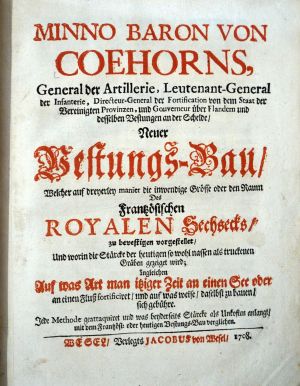 MINNO BARON VON
COEHORNS,
General der Artillerie, Leutenant-General
der Infanterie, Directeur-General der Fortification von dem Staat der
Vereinigten Provinzen, und Gouverneur über Flandern und
desselben Vestungen an der Schelde/
Neuer
Vestungs-Bau/
Welcher auf dreyerley manier die inwendige Grösse oder den Raum
Des
Frantzösischen
ROYALEN Sechsecks/
zu bevestigen vorgestellet/
Und worin die Stärcke der heutigen so wohl nassen als truckenen
Gräben gezeiget wird;
Ingleichen
Auf was Art man itziger Zeit an einen See oder
an einen Fluß fortificiret/ und auf was weise/ daselbst zu bauen/
sich gebühre.
Jede Methode grattaquiret und was beyderseits Stärcke als Unkosten anlangt/
mit dem Frantzös: oder heutigen Vestungs-Bau verglichen.
WESEL/ Verlegts JACOBUS von Wesel/ 1708.